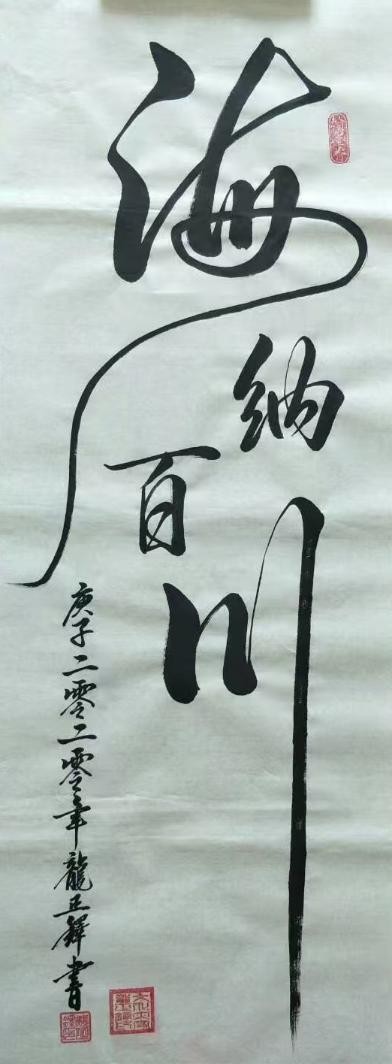 海納百川
庚子二零二零年龍正鐸書